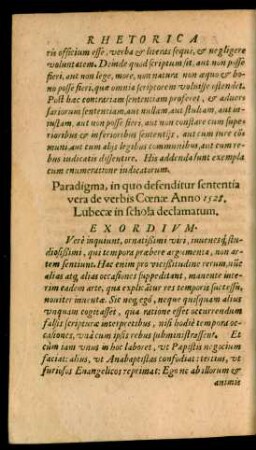 RHETORICA
ris officium esse, verba & literas sequi, & negligere
voluntatem. Deinde quod scriptum sit, aut non posse
fieri, aut non lege, more, non natura non æquo & bo
no posse fieri, quæ omnia scriptorem voluisse ostendet.
Post hæc contrariam sententiam proferet, & adver
sariorum sententiam, aut nullam, aut stultam, aut in
iustam, aut non posse fieri, aut non constare cum supe
rioribus & inferioribus sententijs, aut cum iure cõ
muni, aut cum alijs legibus communibus, aut cum re
bus iudicatis dissentire. His addenda sunt exempla
cum enumeratione iudicatorum.
Paradigma, in quo defenditur sententia
vera de verbis Cœnæ Anno 1528.
Lubecæ in schola declamatum.
EXORDIVM.
Verè inquiunt, ornatissimi viri, iuuenesq́ studi
diosissimi, qui tempora præbere argumenta, non ar
tem sentiunt. Hæc enim pro vicissitudine rerum, nũc
alias atq́ alias occasiones suppeditant, manente inte
rim eadem arte, qua explicãtur res temporis successu,
nouiter inuentæ. Sic neq́ ego, neque quisquam alius
vnquam cogitasset, qua ratione esset occurrendum
falsis scripturæ interpretibus, nisi hodie tempora oc
casiones, vnà cum ipsis rebus subministrassent. Et
cùm iam vnus in hoc laboret, vt Papistis negocium
faciat: alius, vt Anabaptistas confodiat: tertius, vt
furiosos Euangelicos reprimat: Ego nc ab illorum &
animis